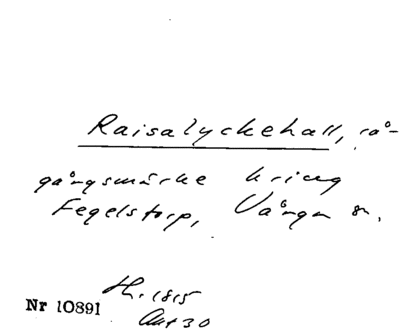 Raisalyckehall, rå-
gångsmärke kring
Fegelstorp, Vånga sn.
Hf. 1815
Akt 30
Nr 10891